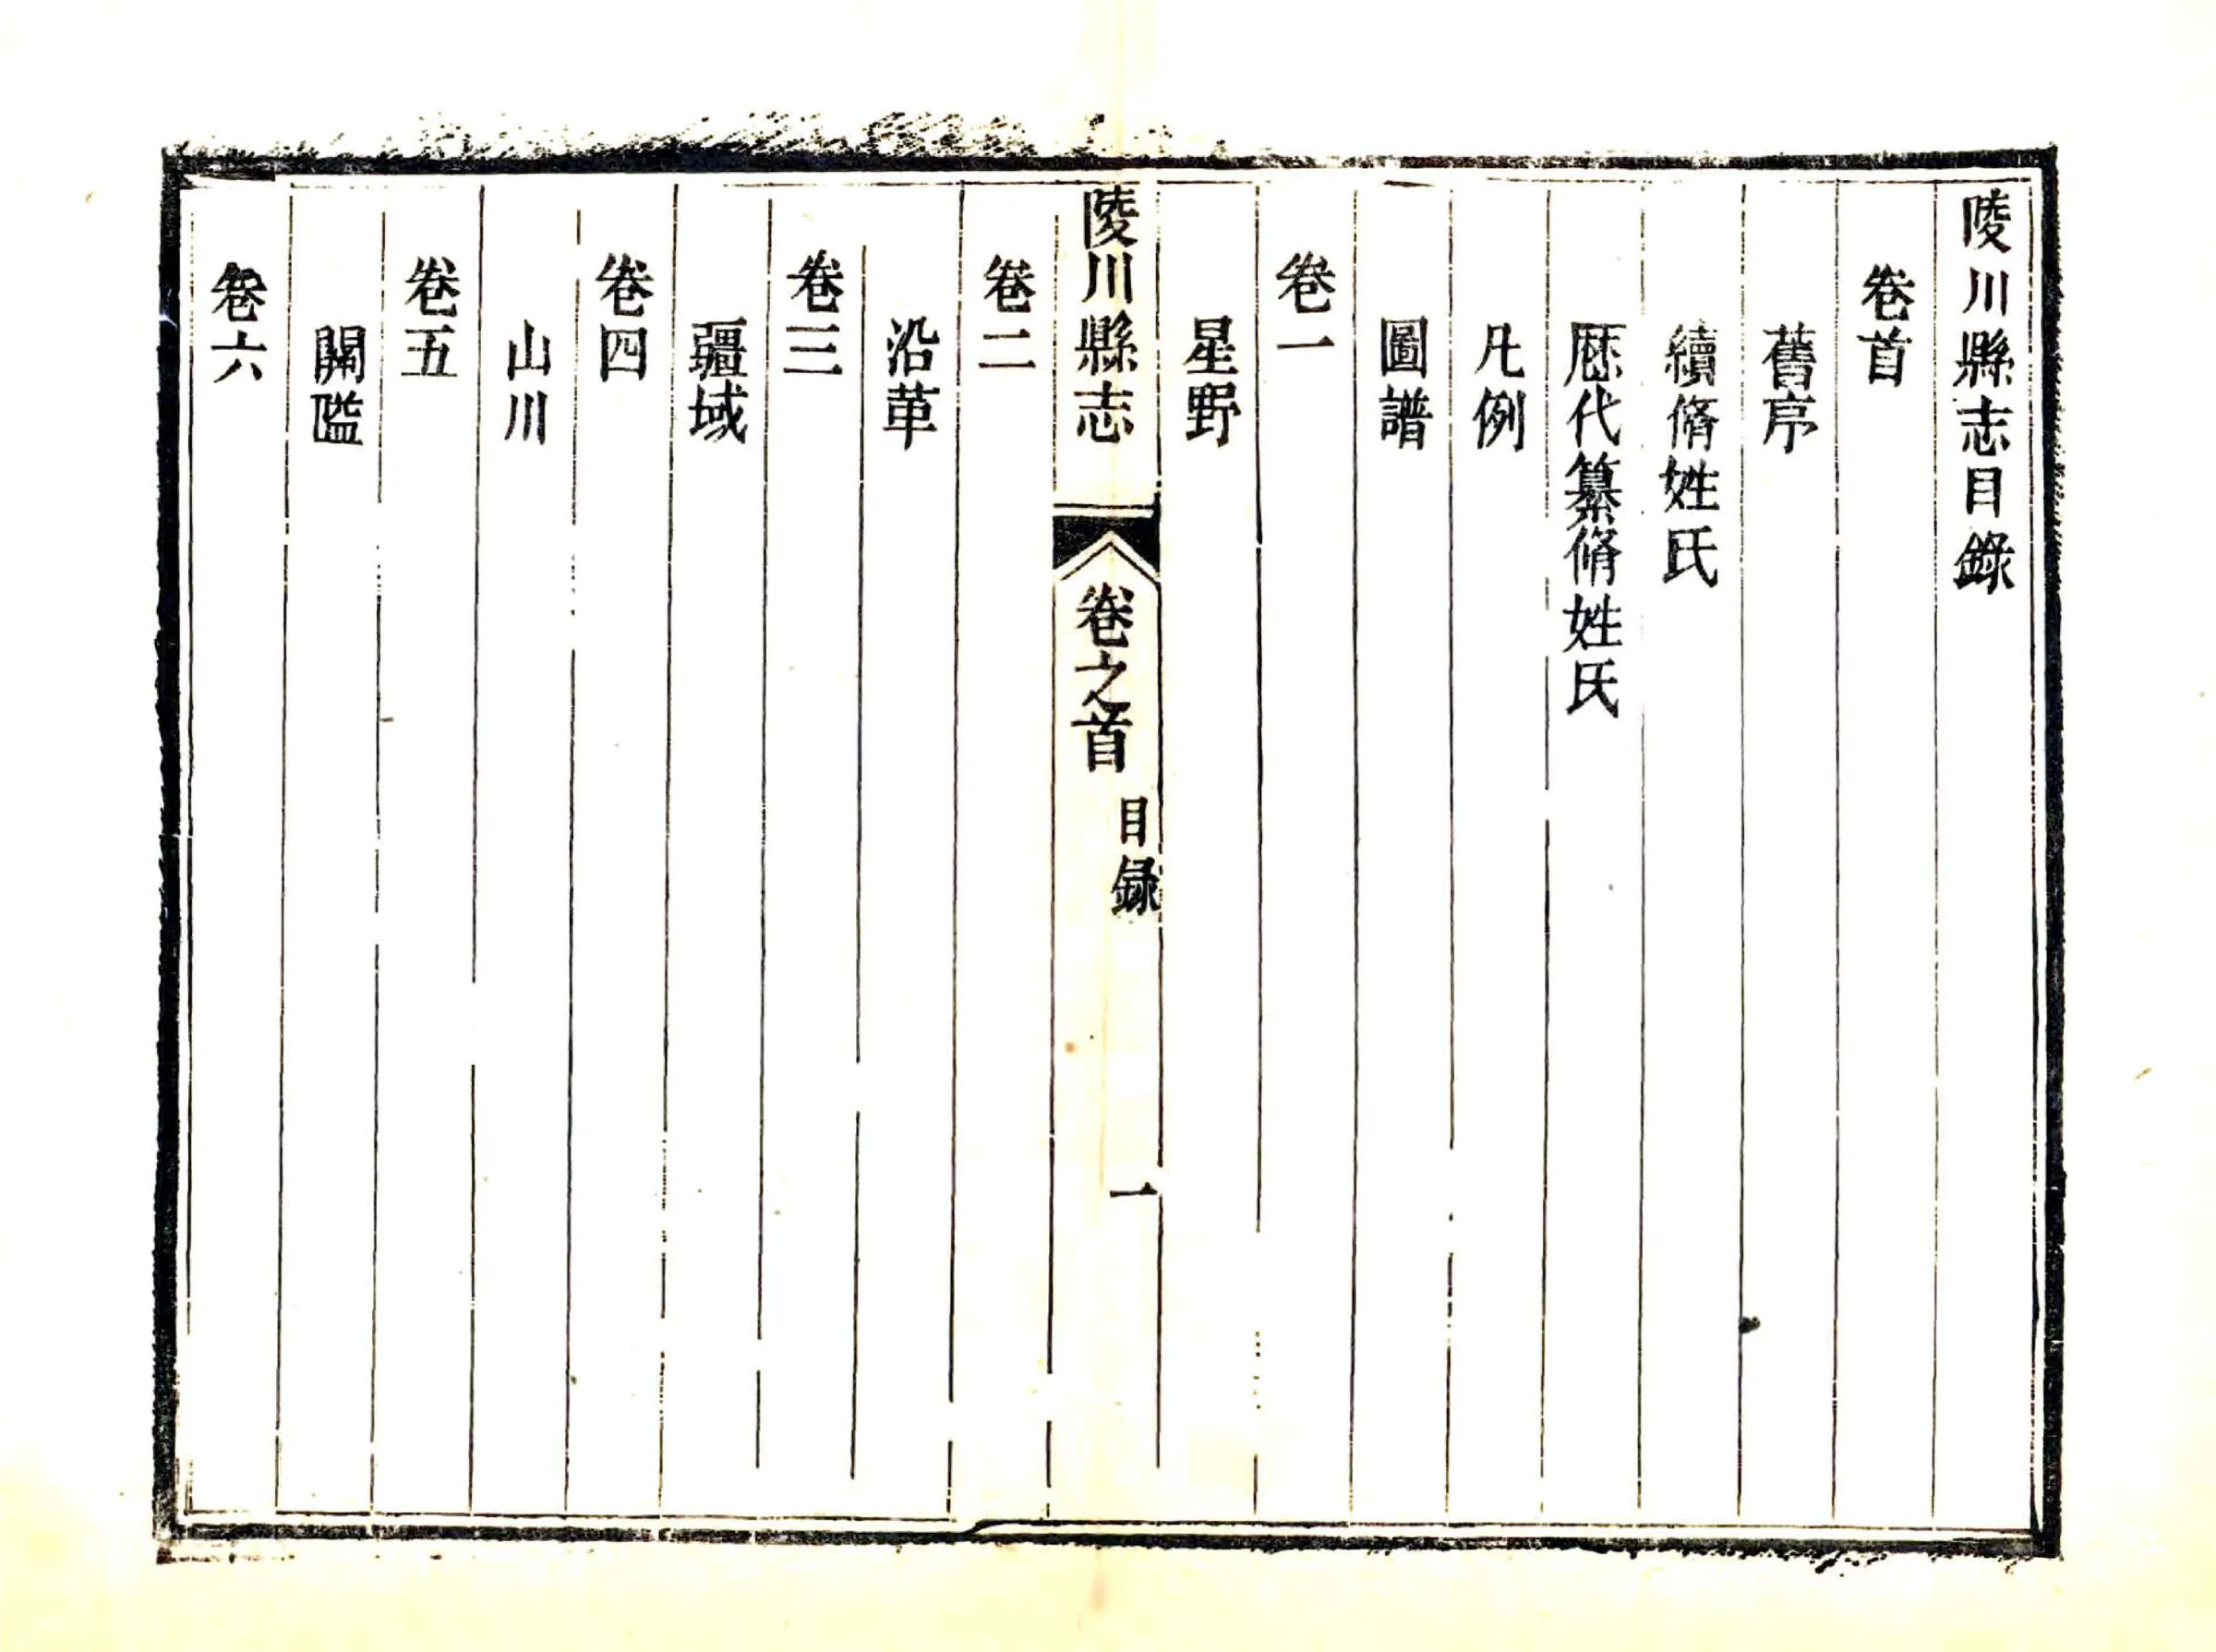 陵川縣志目錄
卷首
舊序
續脩姓氏
歷代纂脩姓氏
凡例
圖譜
卷一
星野
陵川縣志
卷之首
目録
一
卷二
沿革
卷三
疆域
卷四
山川
卷五
關隘
卷六